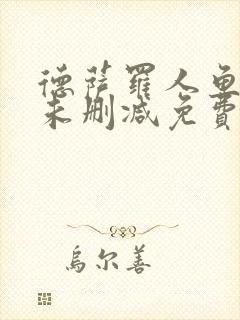 德萨罗人鱼
未删减免费
乌尔善